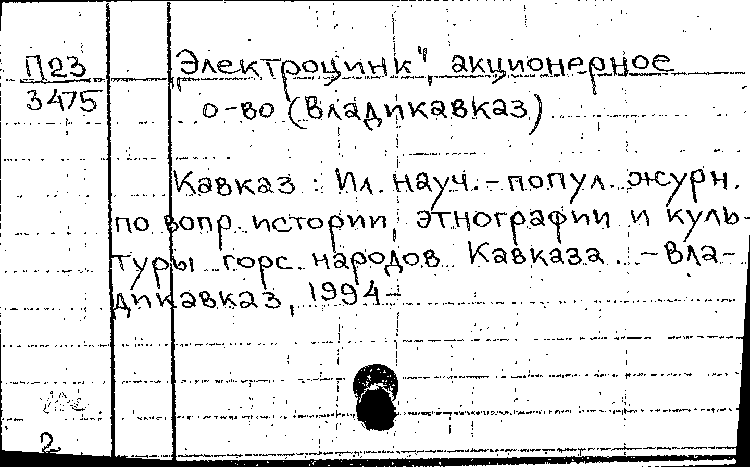 П23
3475
„Электроцинк", акционерное
о-во (Владикавказ)
Кавказ : Ил. науч.-попул. журн.
по вопр. истории, этнографии и куль-
туры горс. народов Кавказа. - Вла-
дикавказ, 1994-
2